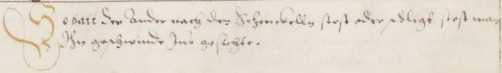 So bald der Ander nach der Schenckelln stost oder schlegt, stost man
Ihn geschwinde Ins gesichte.